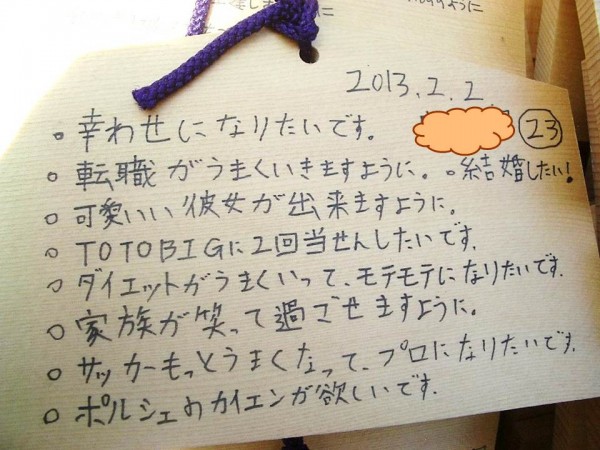 2013.2.2
。幸わせになりたいです。 23
。転職がうまくいきますように。 。結婚したい!
。可愛いい彼女が出来ますように。
。TOTOBIGに2回当せんしたいです。
。ダイエットがうまくいって、モテモテになりたいです。
。家族が笑って過ごせますように。
。サッカーもっとうまくなって、プロになりたいです。
。ポルシェのカイエンが欲しいです。